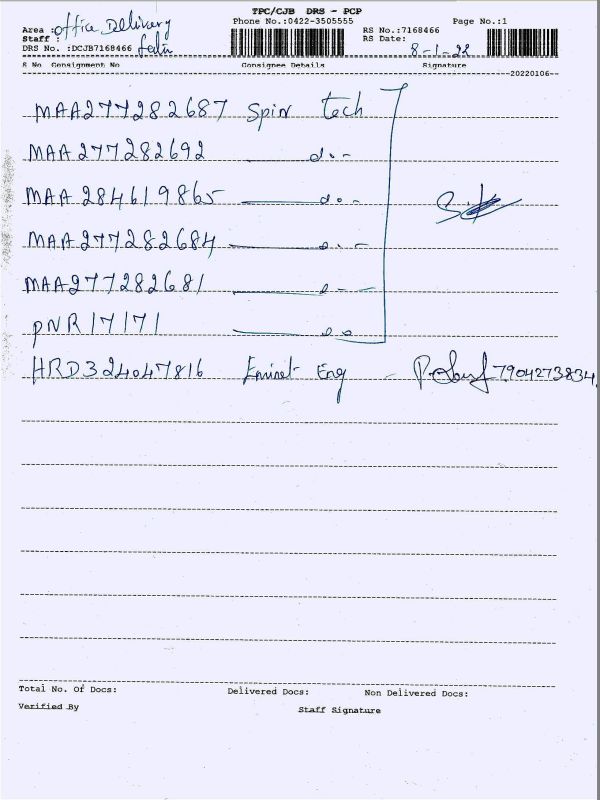 TPC/CJB DRS - PCP
Phone No.:0422-3505555 Page No.:1
Area : office Delivery RS No.:7168466
Staff : RS Date: 8-1-22
DRS No. :DCJB7168466
S No Consignment No Consignee Details Signature
20220106
MAA277282687 Spin tech
MAA277282692 do--
MAA284619865 do--
MAA277282684 do--
MAA277282681
PNR17171
HRD324047816 Eng - 7904273834
Total No. Of Docs: Delivered Docs: Non Delivered Docs:
Verified By Staff Signature